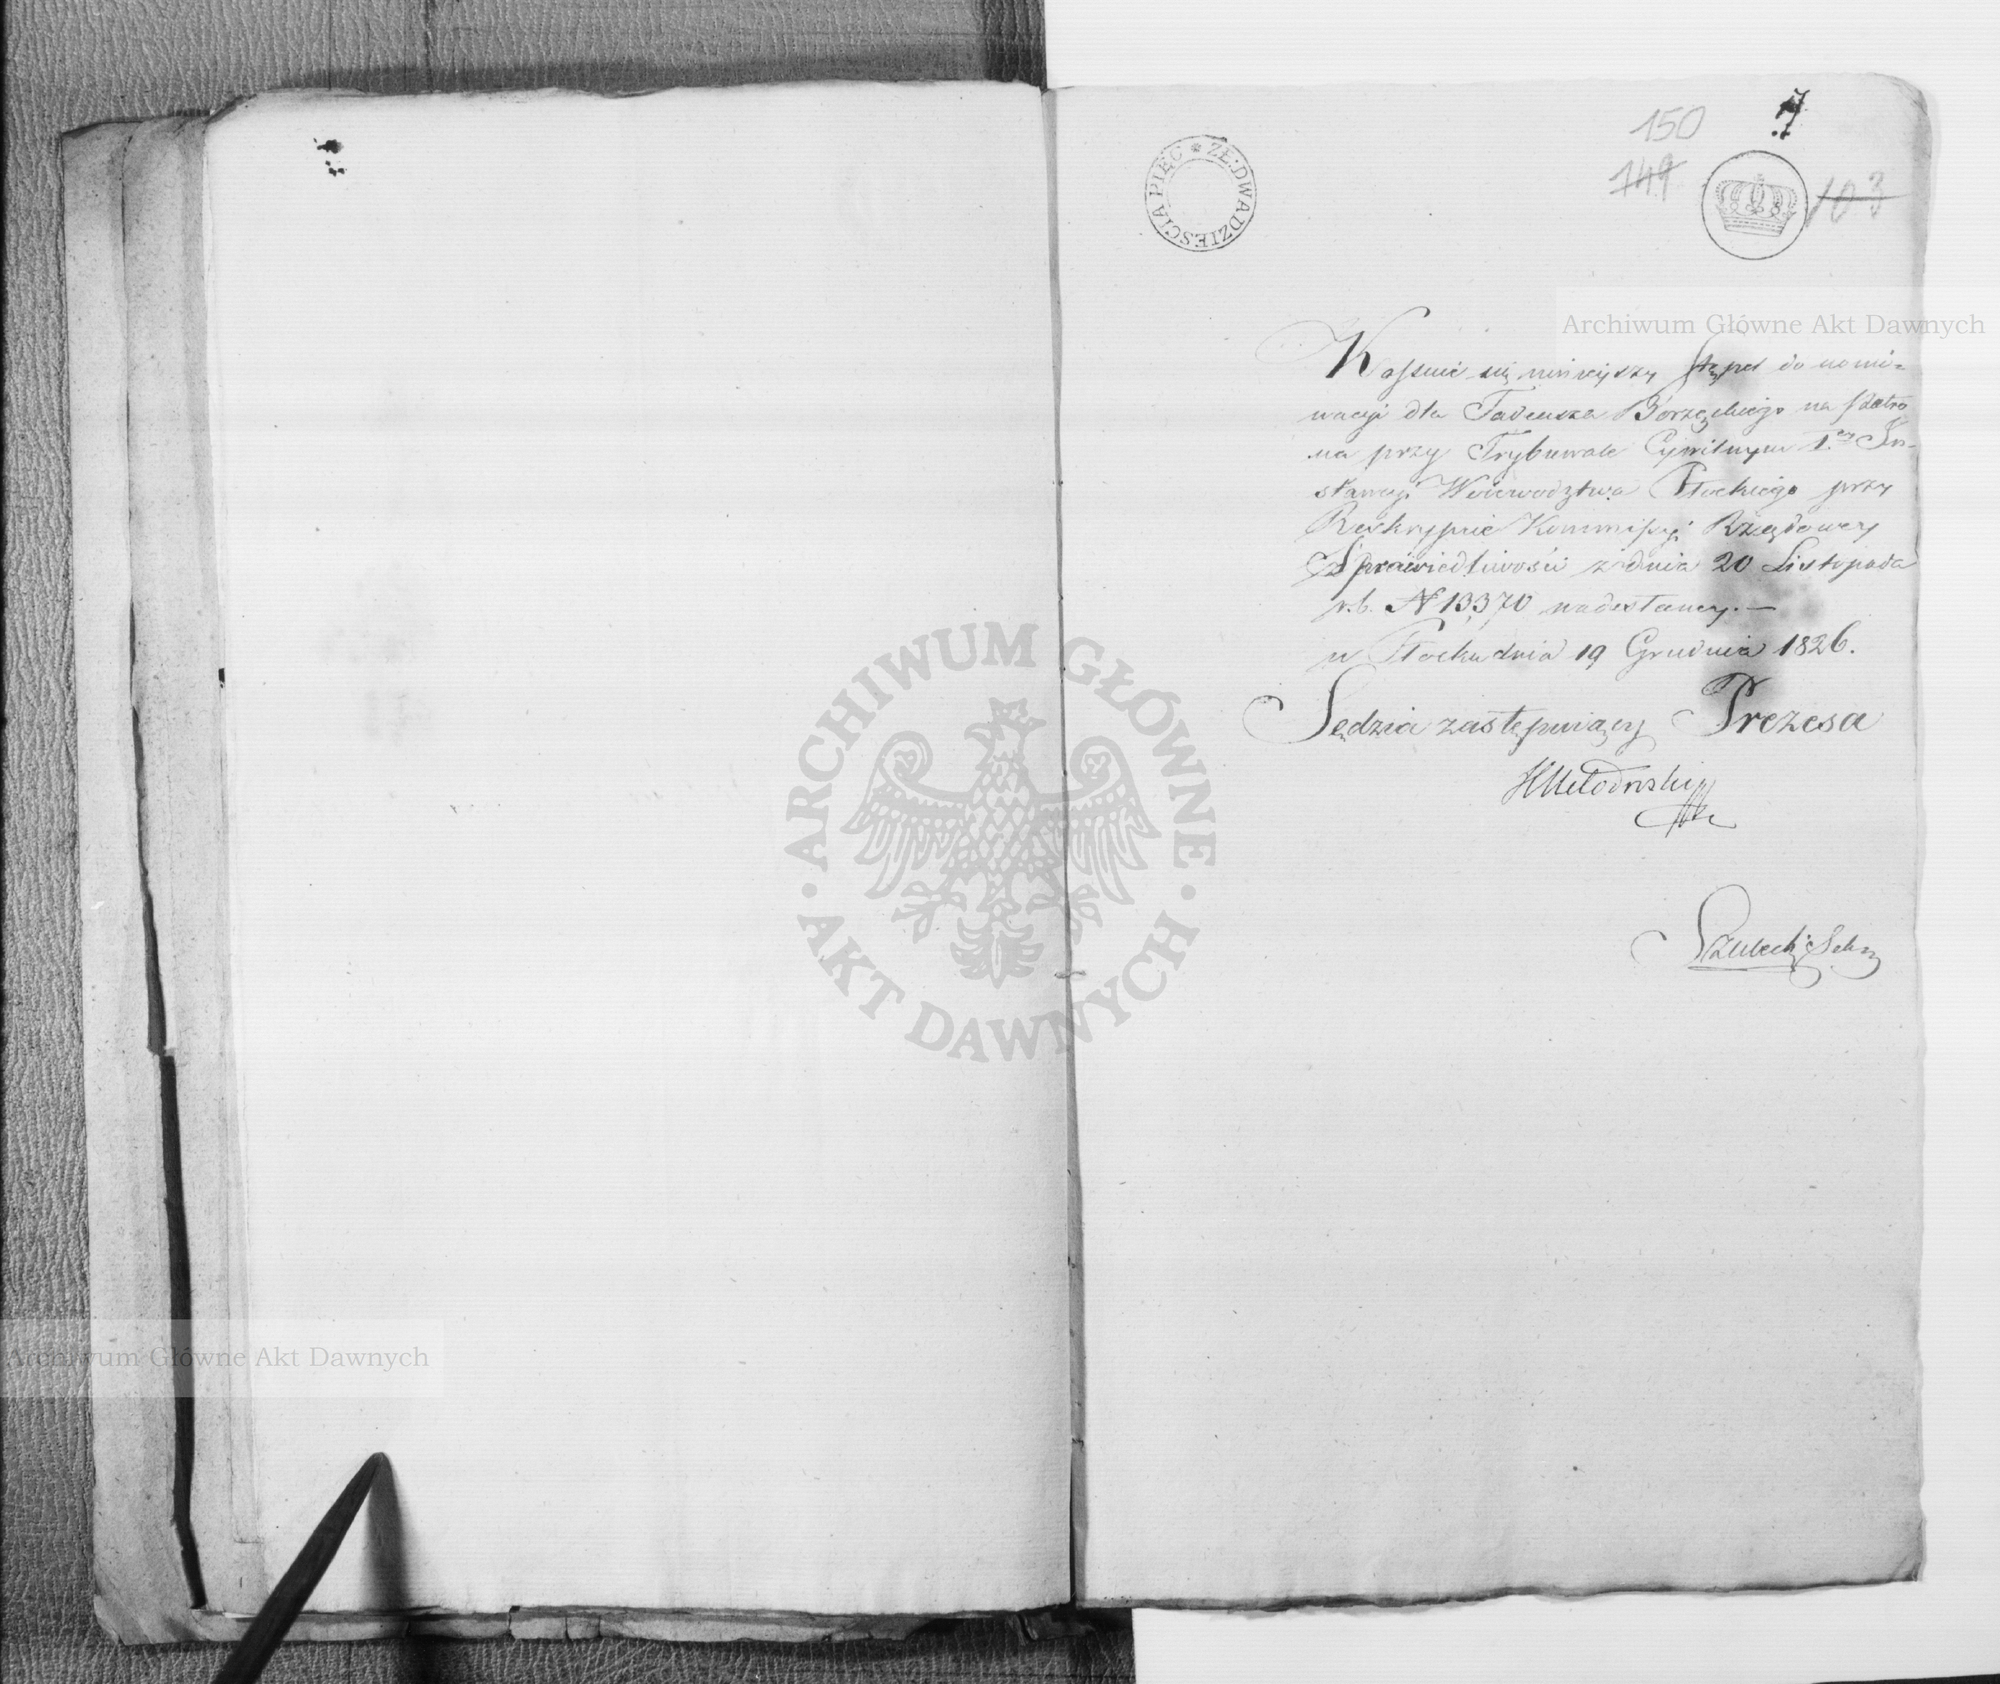 150
7
149
103
ZŁ: DWADZIESCIA PIĘC
Kassuie się ninieyszy Stępel do nomi-
nacyi dla Tadeusza Borzęckiego na Patro
na przy Trybunale Cywilnym 1.ey In-
stancyi Woiewodztwa Płockiego przy
Reskrypcie Kommissyi Rządowey
Sprawiedliwości z dnia 20 Listopada
r.b. N 13370 nadesłaney.—
w Płocku dnia 19 Grudnia 1826.
Sędzia zastępuiący Prezesa
Szulecki Sekr
Archiwum Główne Akt Dawnych
ARCHIWUM GŁÓWNE
· AKT DAWNYCH ·
Archiwum Główne Akt Dawnych